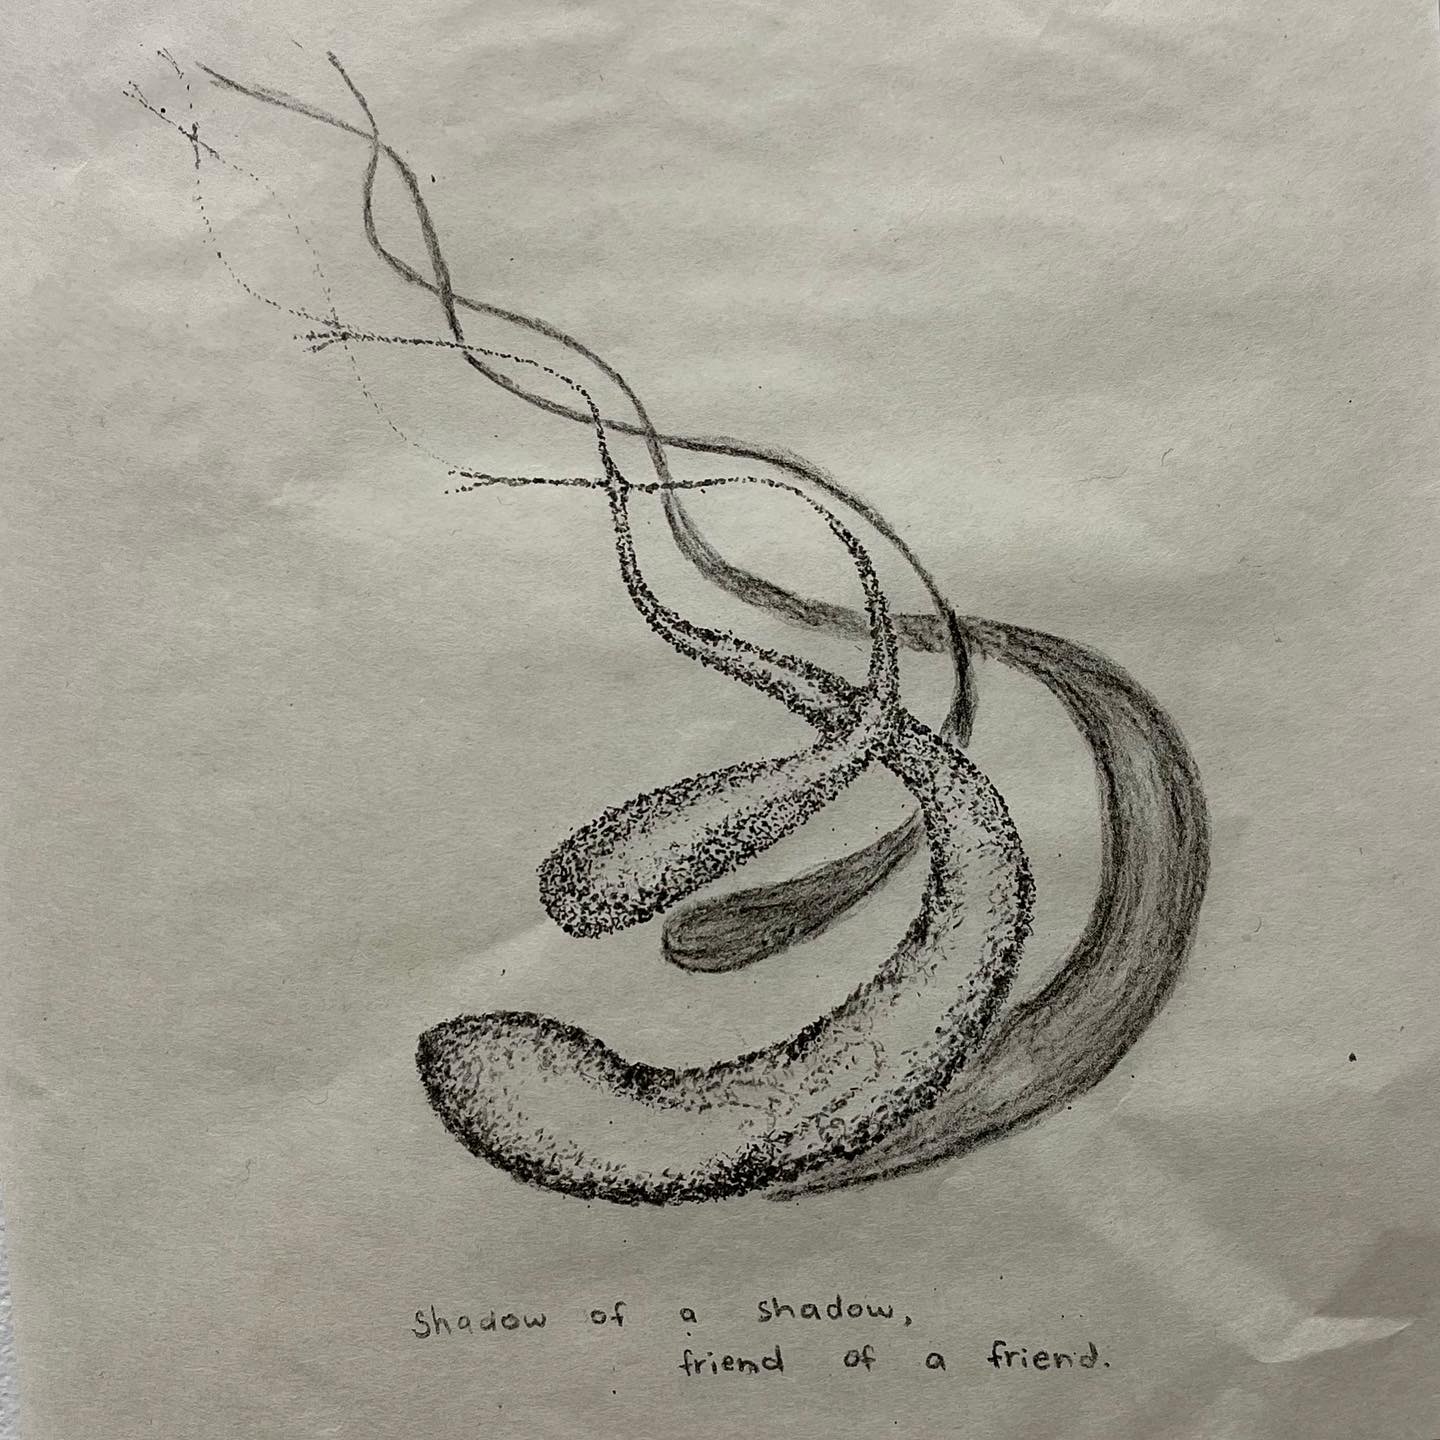 Shadow of a shadow,
friend of a friend.